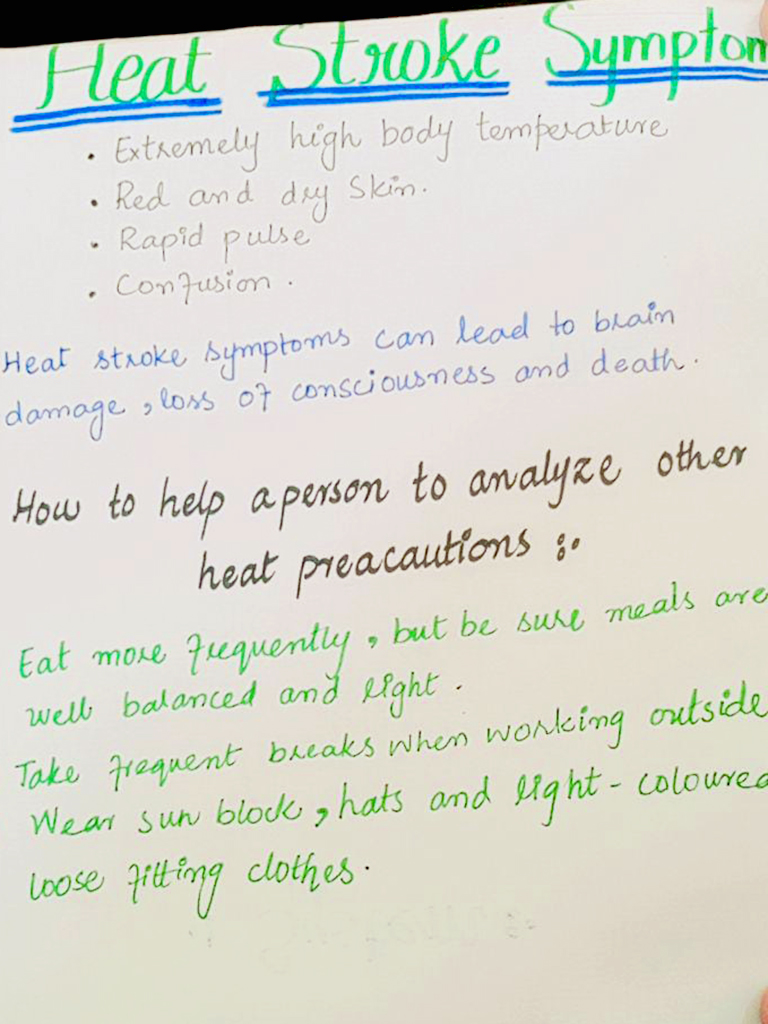 Heat Stroke Symptom
• Extremely high body temperature
• Red and dry Skin.
• Rapid pulse
• Confusion.
Heat stroke symptoms can lead to brain
damage, loss of consciousness and death.
How to help a person to analyze other
heat preacautions :.
Eat more frequently, but be sure meals are
well balanced and light.
Take frequent breaks when working outside
Wear sun block, hats and light-coloured
loose fitting clothes.